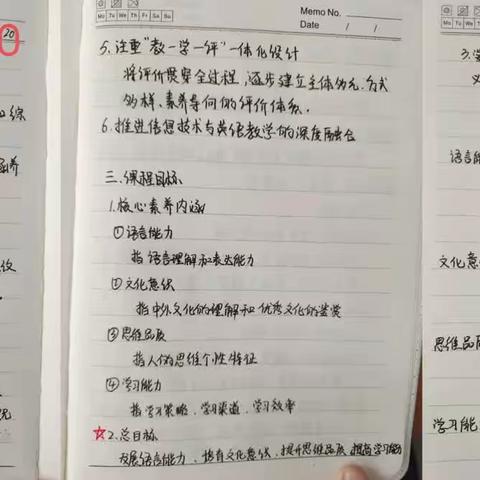 Memo No.
Mo Tu We Th Fr Sa Su
Date / /
5.注重"教一学一评"一体化设计
将评价贯穿全过程,逐步建立主体多元、方式
多样、素养导向的评价体系.
6.推进信息技术与英语教学的深度融合
三.课程目标
1.核心素养内涵
①语言能力
指语言理解和表达能力
②文化意识
指中外文化的理解和优秀文化的鉴赏
③思维品质
指人的思维个性特征
④学习能力
指学习策略、学习渠道、学习效率
☆2.总目标
发展语言能力、培育文化意识、提升思维品质、提高学习能力
20
语言能
文化意
思维品质
学习能